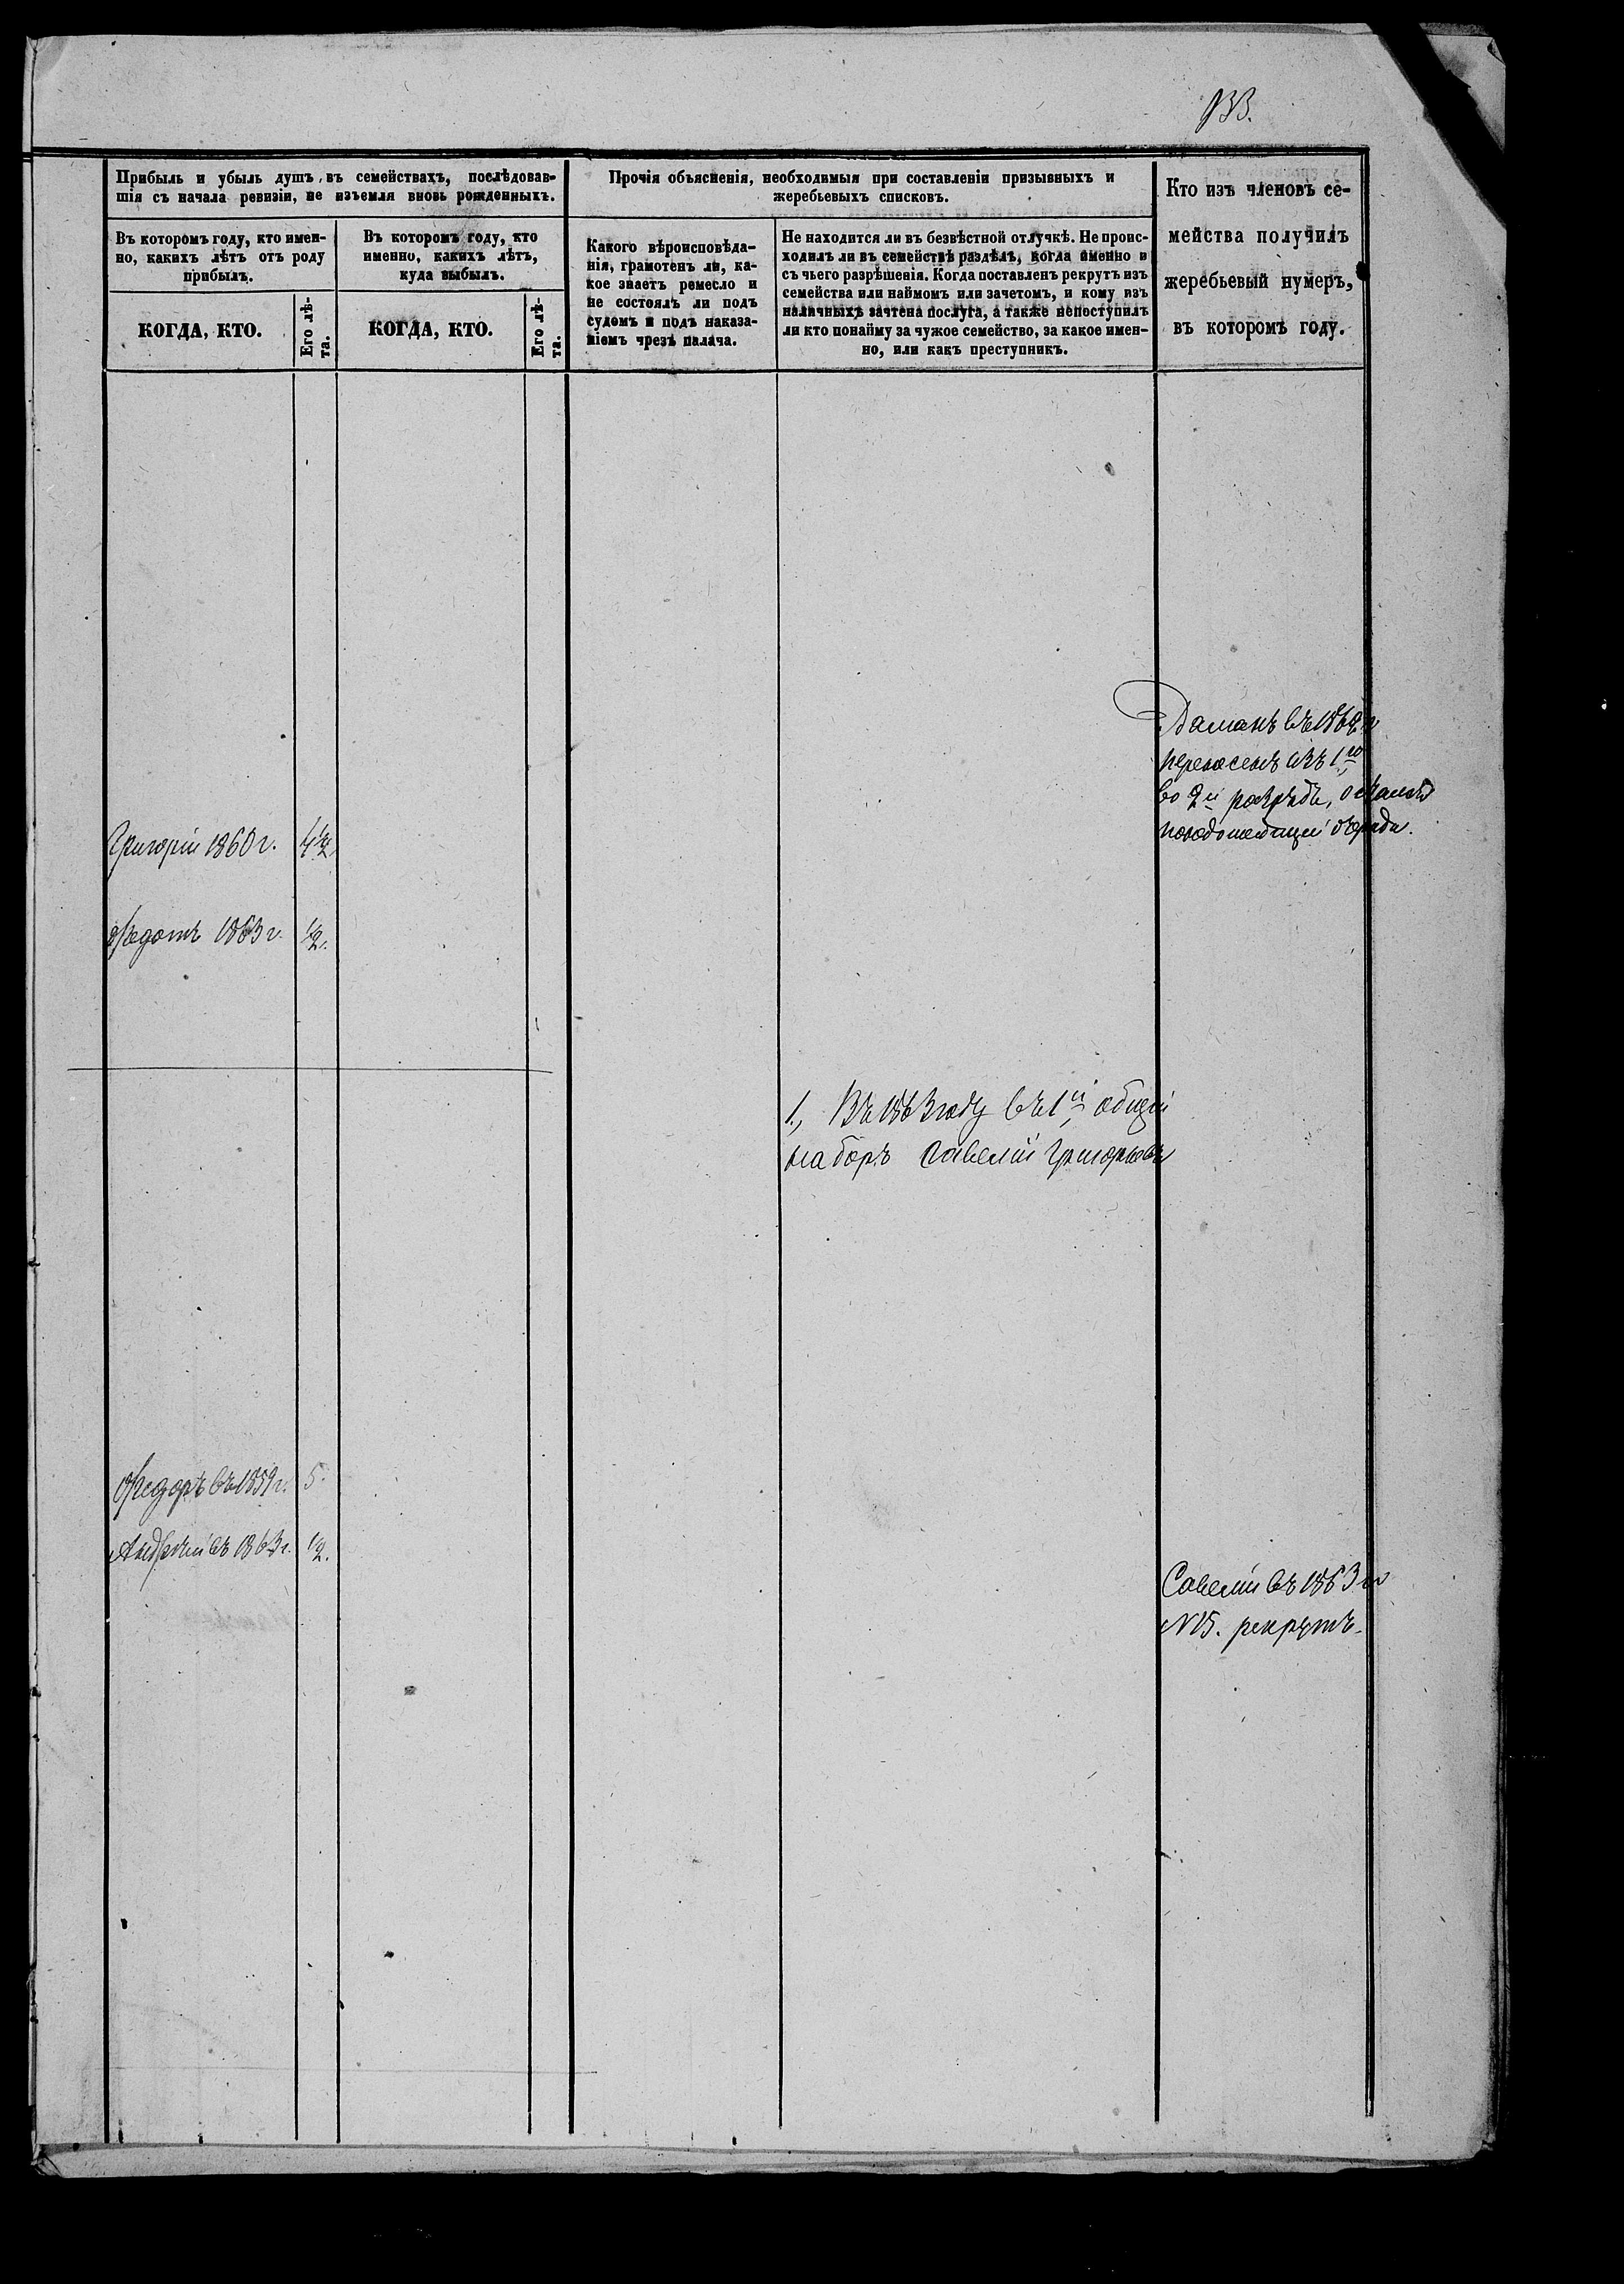 133.
Прибыль и убыль душъ, въ семействахъ, послѣдовав-
шія съ начала ревизіи, не изъемля вновь рожденныхъ.
Въ которомъ году, кто имен-
но, какихъ лѣтъ отъ роду
прибылъ.
КОГДА, КТО.
Его лѣ-
та.
Въ которомъ году, кто
именно, какихъ лѣтъ,
куда выбылъ.
КОГДА, КТО.
Его лѣ-
та.
Прочія объясненія, необходимыя при составленіи призывныхъ и
жеребьевыхъ списковъ.
Какого вѣроисповѣда-
нія, грамотенъ ли, ка-
кое знаетъ ремесло и
не состоялъ ли подъ
судомъ и подъ наказа-
ніемъ чрезъ палача.
Не находится ли въ безвѣстной отлучкѣ. Не проис-
ходилъ ли въ семействѣ раздѣлъ, когда именно и
съ чьего разрѣшенія. Когда поставленъ рекрутъ изъ
семейства или наймомъ или зачетомъ, и кому изъ
наличныхъ зачтена послуга, а также непоступилъ
ли кто понайму за чужое семейство, за какое имен-
но, или какъ преступникъ.
Кто изъ членовъ се-
мейства получилъ
жеребьевый нумеръ,
въ которомъ году.
въ
перенесенъ изъ 1го
во 2й разрядъ,
Григорій 1860 г. 4½
очереди.
Федотъ 1863 г. ½.
1., Въ 1863 году въ 1й общій
наборъ Савелій Григорьевъ
Федоръ въ 1859 г. 5.
Андрей въ 1863 г. ½.
Савелій въ 1863 г.
N 15. рекрутъ.